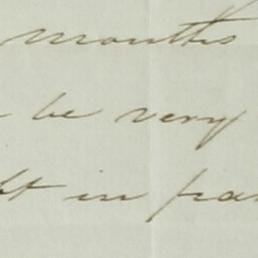 months
be very
in